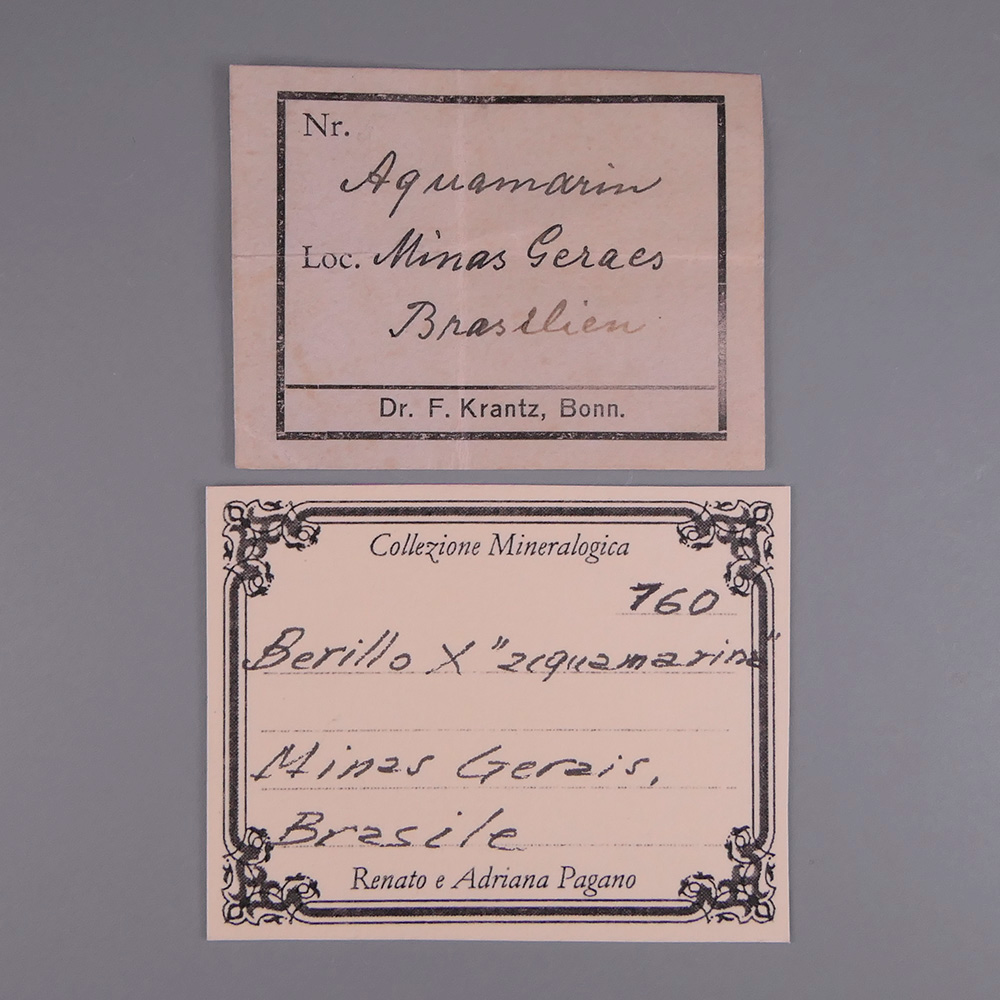 Nr.
Aquamarin
Loc. Minas Geraes
Brasilien
Dr. F. Krantz, Bonn.
Collezione Mineralogica
760
Berillo X "acquamarina"
Minas Gerais,
Brasile
Renato e Adriana Pagano